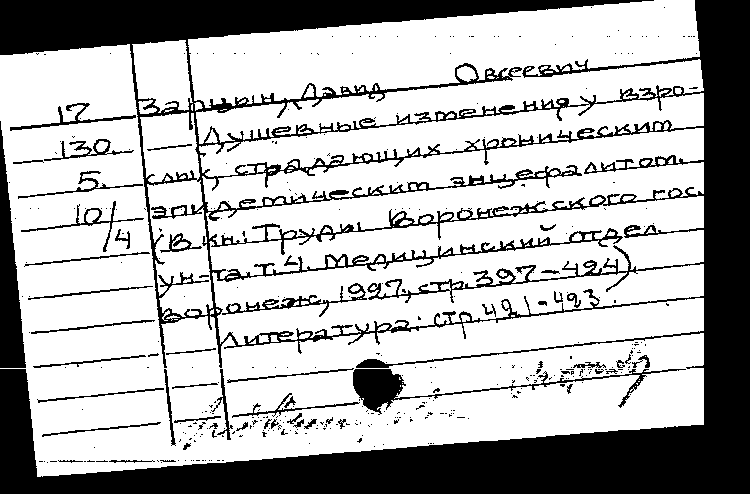 17 Зарцын, Давид Овсеевич
130. Душевные изменения у взро-
5. слых, страдающих хроническим
10/4 эпидемическим энцефалитом.
(В кн.: Труды Воронежского гос.
ун-та. т. 4. Медицинский отдел.
Воронеж, 1927, стр. 397-424).
Литература: стр. 421-423.